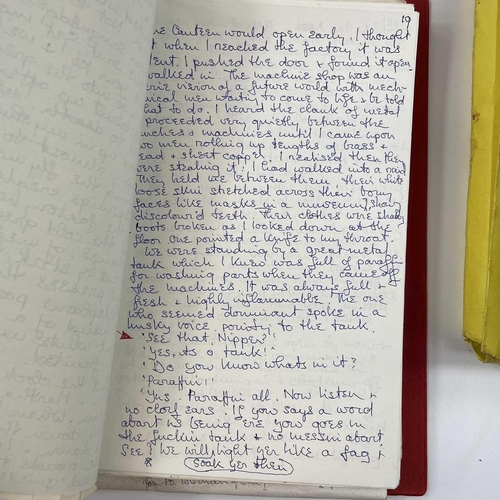 19
he Canteen would open early. I thought
t when I reached the factory it was
lent. I pushed the door & found it open
walked in. The machine shop was an
erie vision of a future world with mech-
nical men waiting to come to life & be told
hat to do. I heard the clank of metal
proceeded very quietly between the
enches & machines until I came upon
wo men rolling up lengths of brass &
ead & sheet copper. I realised then they
were stealing it, I had walked into a
They held me between them, their white
loose skin stretched across their bony
faces like masks in a museum,
discolour'd teeth. Their clothes were shabby
boots broken as I looked down at the
floor one pointed a knife to my throat
We were standing by a great metal
tank which I knew was full of paraffin
for washing parts when they came off
the machines. It was always full &
fresh & highly inflammable. The one
who seemed dominant spoke in a
husky voice, pointing to the tank.
'See that, Nipper?'
'Yes, its a tank'.
'Do you know whats in it?
'Paraffin!'
'Yus. Paraffin all. Now listen &
no cloth ears. If you says a word
abart us being 'ere you goes in
the fuckin tank & no messin abart.
See? We will light yer like a fag &
soak yer then